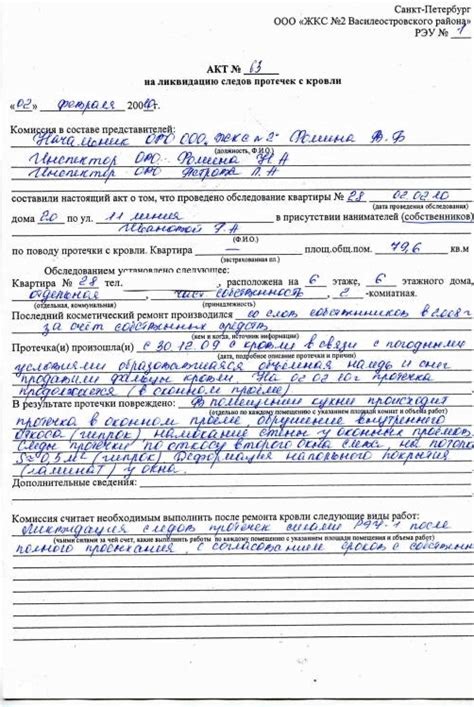 Санкт-Петербург
ООО «ЖКС №2 Василеостровского района»
РЭУ № 1
АКТ № 63
на ликвидацию следов протечек с кровли
«02» февраля 2010г.
Комиссия в составе представителей:
Начальник ОРО ООО ЖКС №2 Фомина В.Б
(должность, Ф.И.О.)
Инспектор ОРО Фомина Н А
Инспектор ОРО Петрова Л.А
составили настоящий акт о том, что проведено обследование квартиры № 28 02.02.10
(дата проведения обследования)
дома 20 по ул. 11 линия в присутствии нанимателей (собственников)
Ивановой Г.А
(Ф.И.О.)
по поводу протечки с кровли. Квартира — площ.общ.пом. 79,6 кв.м
(застрахована пл.)
Обследованием установлено следующее:
Квартира № 28 тел. , расположена на 6 этаже, 6 этажного дома,
отдельная, част собственность, 2 -комнатная.
(отдельная, коммунальная) (принадлежность)
Последний косметический ремонт производился со слов собственников в 2008г
за счёт собственных средств
(кем и когда, источник информации)
Протечка(и) произошла(и) с 30.12.09 с кровли в связи с погодными
(дата, подробное описание протечки и причин)
условиями образовавшаяся объемная наледь и снег
продавили фальцы кровли На 02 02 10г протечка
продолжается (в оконном проёме)
В результате протечки повреждено: В помещении кухни происходит
(отдельно по каждому помещению с указанием площади комнат и объема работ)
протечка в оконном проеме, обрушение внутреннего
откоса (гипрок) намокание стены у оконных проёмов.
Следы протечки по откосу второго окна слева на потолке
S≈0,5м² (гипрок) Деформация напольного покрытия
(ламинат) у окна.
Дополнительные сведения:
Комиссия считает необходимым выполнить после ремонта кровли следующие виды работ:
Ликвидация следов протечек силами РЭУ-1 после
(чьими силами за чей счет, какие выполнить работы по каждому помещению с указанием площади помещения и объема работ)
полного просыхания, с согласованием сроков с собственн